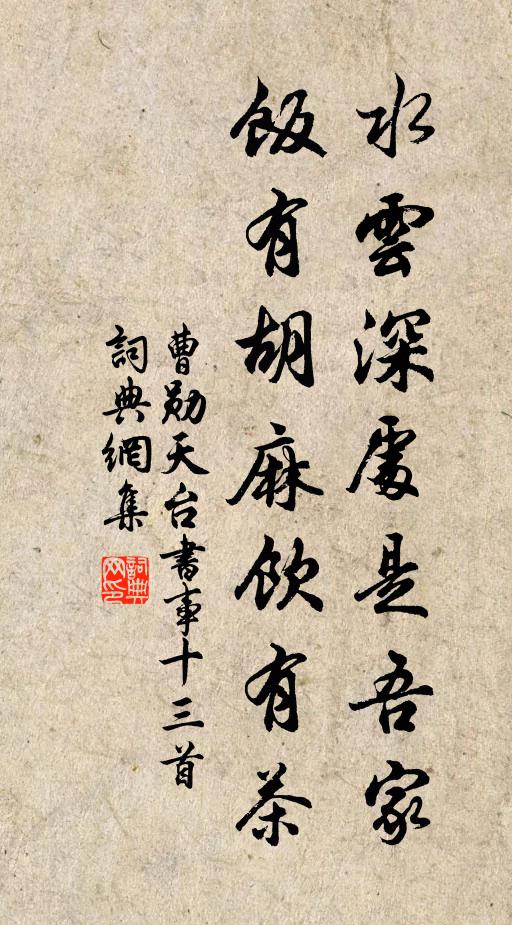 水雲深處是吾家
飯有胡麻飲有茶
曹勛天台書事十三首
詞典網集
詞典網印